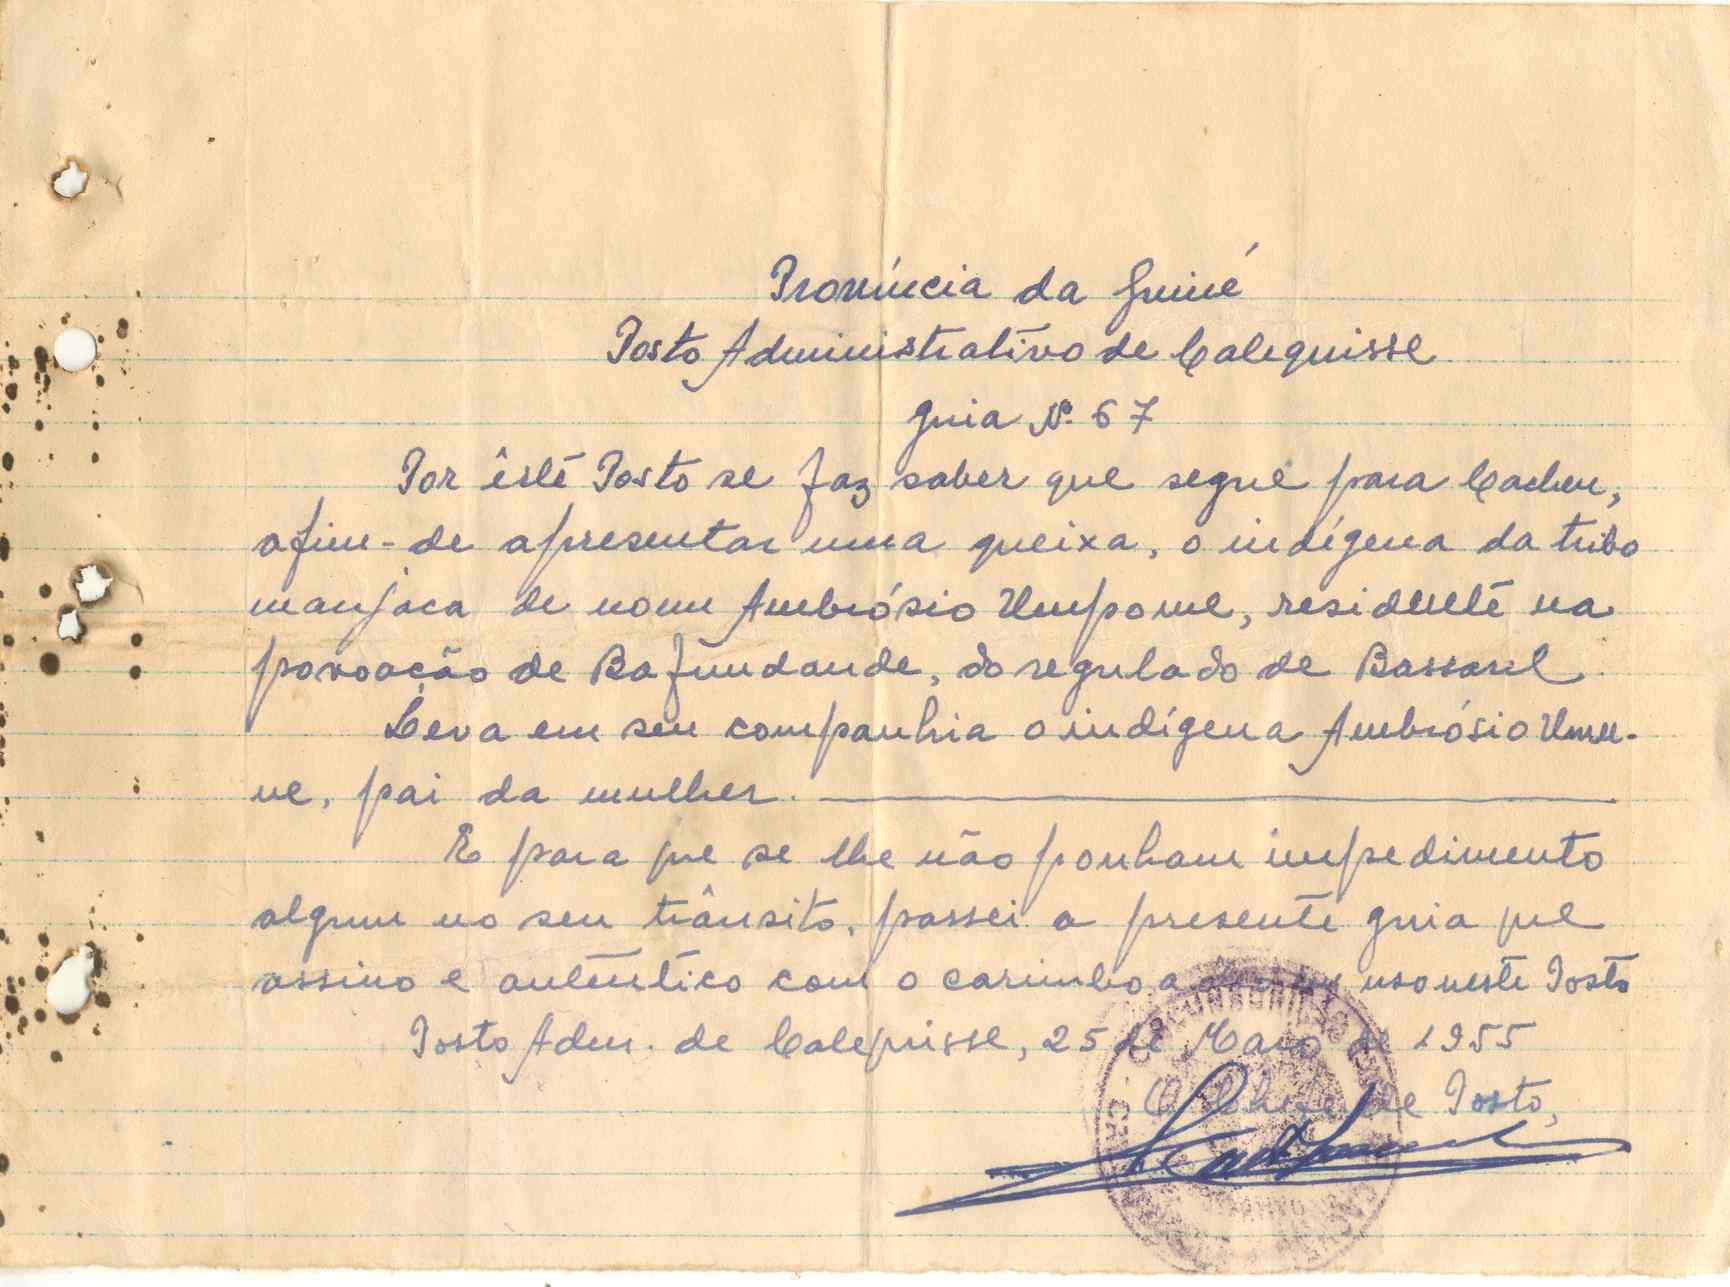 Província da Guiné
Posto Administrativo de Calequisse
Guia Nº 67
Por êste Posto se faz saber que segue para Cacheu,
afim-de apresentar uma queixa, o indígena da tribo
manjaca de nome Ambrósio Umpome, residente na
povoação de Bafundande, do regulado de Bassarel
Leva em seu companhia o indígena Ambrósio Umu-
ne, pai da mulher.
E para que se lhe não ponham impedimento
algum no seu trânsito, passei a presente guia que
assino e autêntico com o carimbo a uso neste Posto
Posto Adm. de Calequisse, 25 de Maio de 1955
O Chefe de Posto,